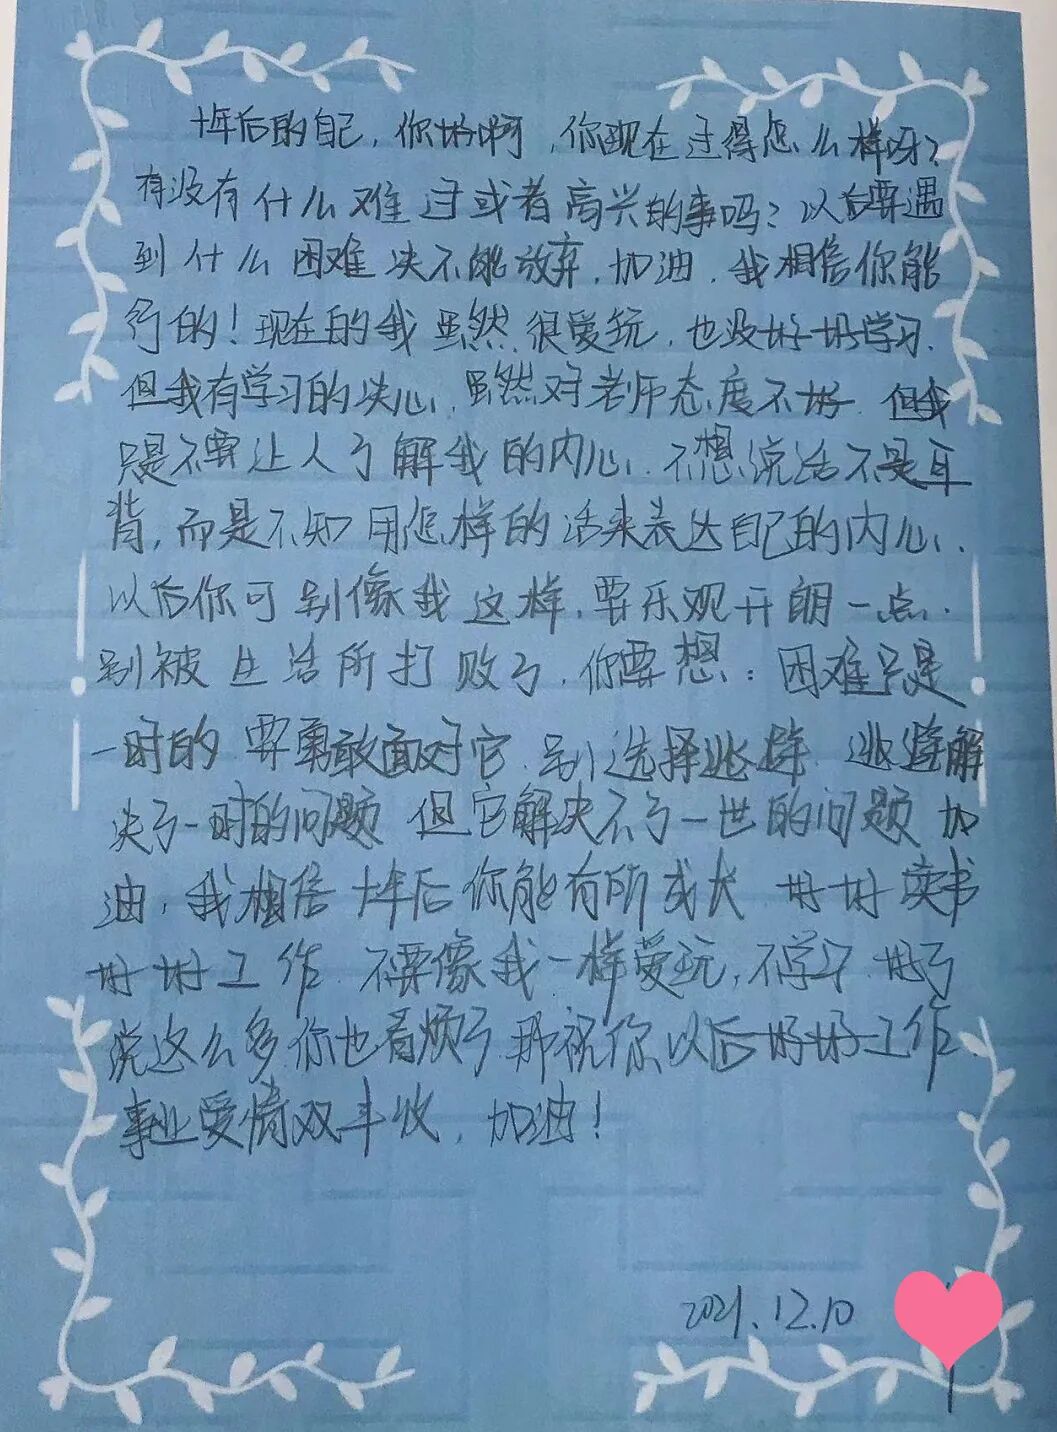 十年后的自己，你好啊，你现在过得怎么样呀？
有没有什么难过或者高兴的事吗？以后要遇
到什么困难决不能放弃，加油，我相信你能
行的！现在的我虽然很爱玩，也没好好学习，
但我有学习的决心，虽然对老师态度不好，但我
只是不要让人了解我的内心，不想说话不是耳
背，而是不知用怎样的话来表达自己的内心，
以后你可别像我这样，要乐观开朗一点，
别被生活所打败了，你要想：困难只是
一时的 要勇敢面对它，别选择逃避，逃避解
决了一时的问题 但它解决不了一世的问题 加
油，我相信十年后你能有所成长 好好读书
好好工作 不要像我一样爱玩，不学习 好了
说这么多你也看烦了，那祝你以后好好工作，
事业爱情双丰收，加油！
2021.12.10